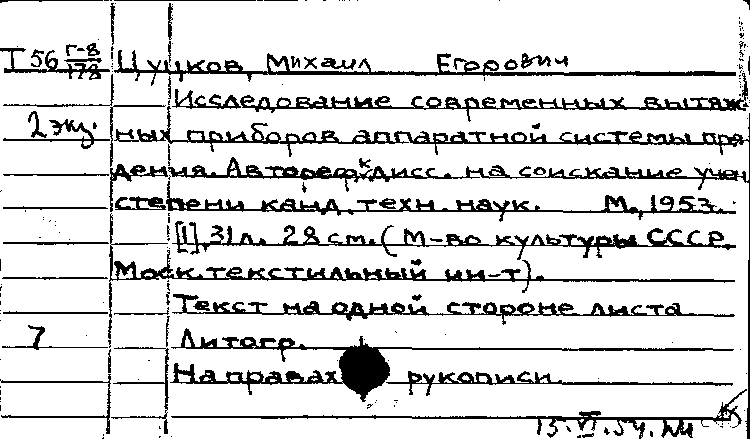 Т 56 Г-8/178 Цуцков, Михаил Егорович
Исследование современных вытяж-
2 экз. ных приборов аппаратной системы пря-
дения. Автореф. к дисс. на соискание учен.
степени канд. техн. наук. М., 1953.
[1], 31 л. 28 см. (М-во культуры СССР.
Моск. текстильный ин-т).
Текст на одной стороне листа
7 Литогр.
На правах рукописи.
15.VI.54.